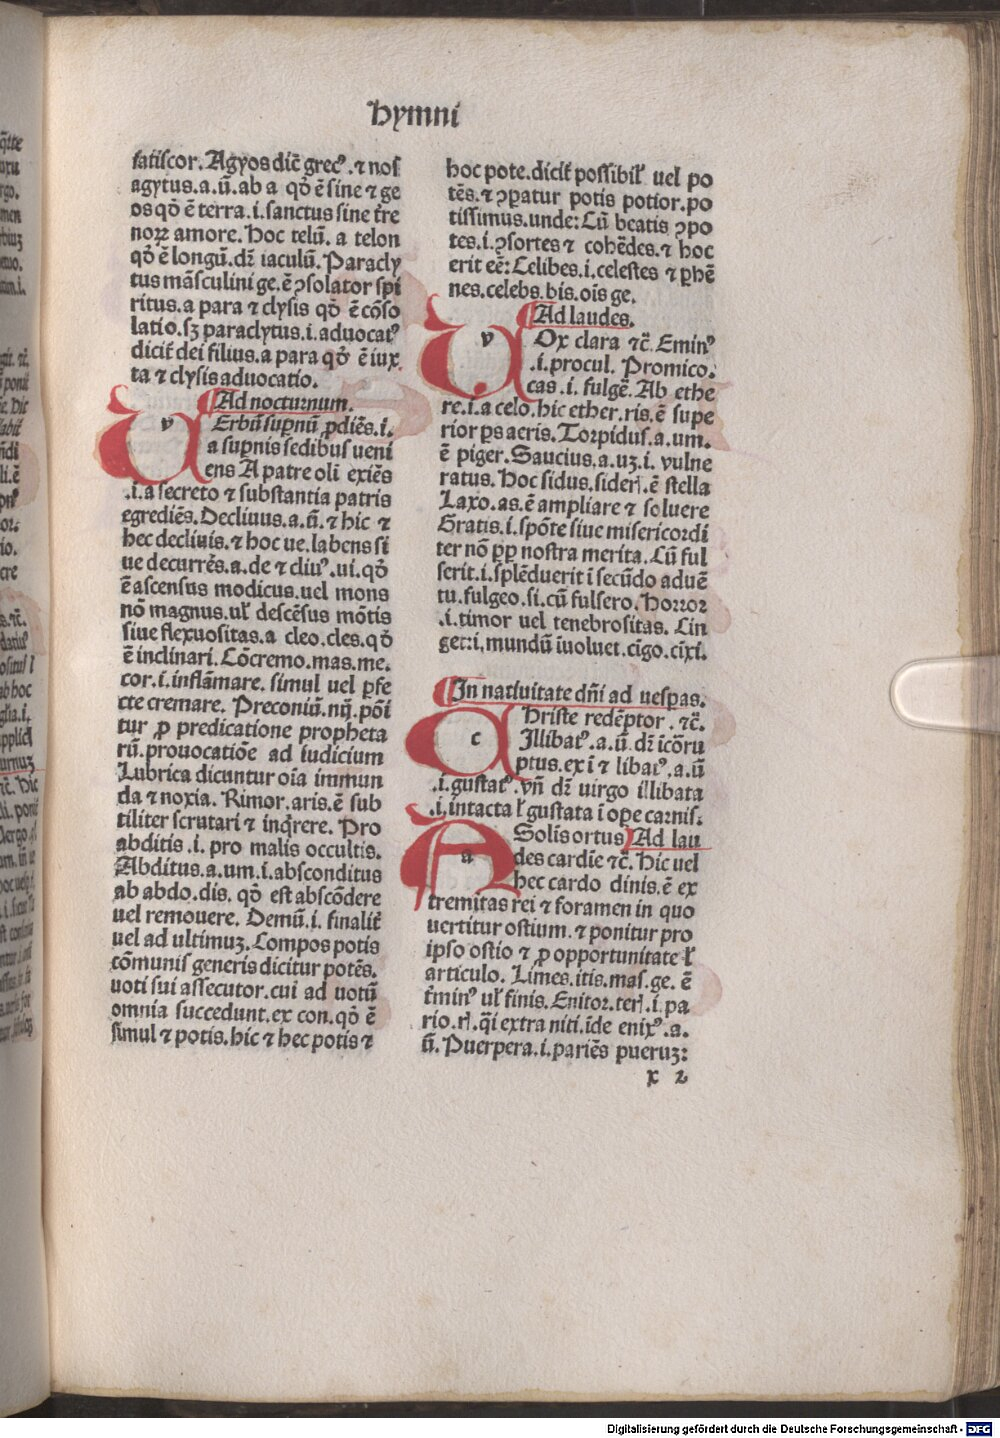 Hymni
fatiscor. Agyos dic̄ grecꝰ. ⁊ nos
agytus.a.ū. ab a qđ ē sine ⁊ ge
os qđ ē terra.i. sanctus sine t̄re
noꝝ amore. Hoc telū. a telon
qđ ē longū. dr̄ iaculū. Paracly
tus māsculini ge. ē ꝯsolator spi
ritus. a para ⁊ clysis qđ ē cōso
latio. sꝫ paraclytus .i. aduocatꝰ
dicit̄ dei filius. a para qđ ē iux
ta ⁊ clysis aduocatio.
Ad nocturnum.
v Erbū suꝑnū ꝓdiēs .i.
a suꝑnis sedibus ueni
ens A patre oli exiēs
.i. a secreto ⁊ substantia patris
egrediēs. Decliuus.a.ū. ⁊ hic ⁊
hec decliuis. ⁊ hoc ue. labens si
ue decurrēs. a. de ⁊ cliuꝰ. ui. qđ
ē ascensus modicus. uel mons
nō magnus. ul̄ descēsus mōtis
siue flexuositas. a cleo. cles. qđ
ē inclinari. Cōcremo. mas. me.
cor. i. inflāmare. simul uel ꝑfe
cte cremare. Preconiū. nij. pōi
tur ꝓ predicatione propheta
rū. prouocatiōe ad iudicium
Lubrica dicuntur oīa immun
da ⁊ noxia. Rimor. aris. ē sub
tiliter scrutari ⁊ inq̄rere. Pro
abditis .i. pro malis occultis.
Abditus. a. um. i. absconditus
ab abdo. dis. qđ est abscōdere
uel remouere. Demū. i. finalit̄
uel ad ultimuꝫ. Compos potis
cōmunis generis dicitur potēs.
uoti sui assecutor. cui ad uotū
omnia succedunt. ex con. qđ ē
simul ⁊ potis. hic ⁊ hec potis ⁊
hoc pote. dicit̄ possibil̄ uel po
tēs. ⁊ ꝯꝑatur potis potior. po
tissimus. unde: Cū beatis ꝯpo
tes .i. ꝯsortes ⁊ cohēdes. ⁊ hoc
erit eē: Celibes .i. celestes ⁊ ꝑhē
nes. celebs. bis. oīs ge.
Ad laudes.
v Ox clara ⁊c̄. Eminꝰ
.i. procul. Promico.
cas. i. fulgē. Ab ethe
re .i. a celo. hic ether. ris. ē supe
rior ꝑs aeris. Torpidus. a. um.
ē piger. Saucius. a. uꝫ. i. vulne
ratus. Hoc sidus. sideri. ē stella
Laxo. as. ē ampliare ⁊ soluere
Gratis. i. spōte siue misericordi
ter nō ꝓp nostra merita. Cū ful
serit. i. splēduerit i secūdo aduē
tu. fulgeo. si. cū fulsero. Horror
.i. timor uel tenebrositas. Cin
get: i. mundū iuoluet. cigo. cīxi.
In natiuitate dn̄i ad uesꝑas.
c Hriste redēptor. ⁊c̄.
Illibatꝰ. a. ū. dr̄ icōru
ptus. ex i ⁊ libatꝰ. a. ū
.i. gustatꝰ. vn̄ dr̄ uirgo illibata
.i. intacta l̄ gustata i oꝑe carnis.
a Solis ortus Ad lau
des cardie ⁊c̄. Hic uel
hec cardo dinis. ē ex
tremitas rei ⁊ foramen in quo
uertitur ostium. ⁊ ponitur pro
ipso ostio ⁊ ꝓ opportunitate l̄
articulo. Limes. itis. mas. ge. ē
t̄minꝰ ul̄ finis. Enitor. teri. i. pa
rio. ri. q̄i extra niti. īde enixꝰ. a.
ū. Puerpera. i. pariēs pueruꝫ:
x 2
Digitalisierung gefördert durch die Deutsche Forschungsgemeinschaft - DFG